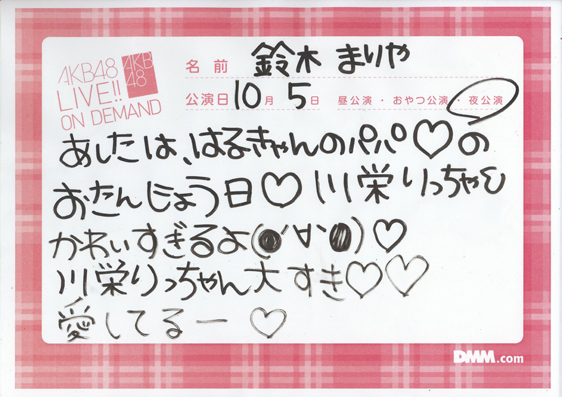 AKB48
LIVE!!
ON DEMAND
AKB
48
名前 鈴木 まりや
公演日 10月 5日 昼公演・おやつ公演・夜公演
あしたは、はるきゃんのパパ♡の
おたんじょう日♡川栄りっちゃん
かわいすぎるよ(●´∀`●)♡
川栄りっちゃん大すき♡♡
愛してるー ♡
DMM.com